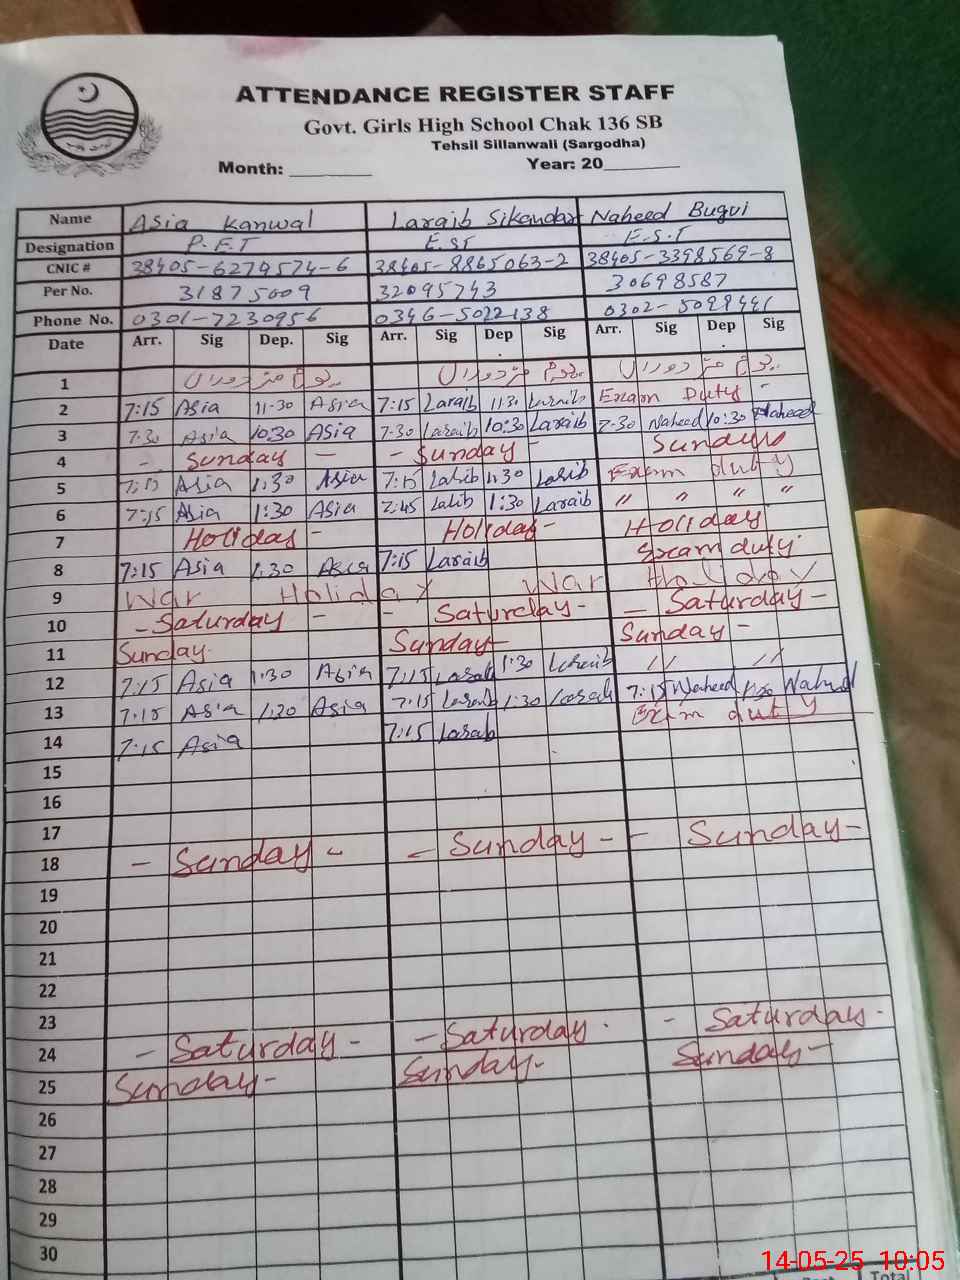 ATTENDANCE REGISTER STAFF
Govt. Girls High School Chak 136 SB
Tehsil Sillanwali (Sargodha)
Month: ________ Year: 20________
Name Asia Kanwal Laraib Sikandar Naheed Bugvi
Designation P.E.T E.ST E.S.T
CNIC # 38405-6279574-6 38405-8865063-2 38405-3398569-8
Per No. 31875009 32095743 30698587
Phone No. 0301-7230956 0346-5022138 0302-
Date Arr. Sig Dep. Sig Arr. Sig Dep. Sig Arr. Sig Dep. Sig
1 یوم مزدوراں یوم مزدوراں یوم مزدوراں
2 7:15 Asia 11:30 Asia 7:15 Laraib 11:30 Laraib Exam Duty -
3 7:30 Asia 10:30 Asia 7:30 Laraib 10:30 Laraib 7:30 Naheed 10:30 Naheed
4 - Sunday - - Sunday - Sunday
5 7:15 Asia 1:30 Asia 7:15 Laraib 1:30 Laraib Exam duty
6 7:15 Asia 1:30 Asia 7:45 Laraib 1:30 Laraib " " " "
7 Holiday - Holiday - Holiday
8 7:15 Asia 1:30 Asia 7:15 Laraib Exam duty
9 War Holiday War Holiday
10 - Saturday - - Saturday - - Saturday -
11 Sunday - Sunday - Sunday -
12 7:15 Asia 1:30 Asia 7:15 Laraib 1:30 Laraib " "
13 7:15 Asia 1:30 Asia 7:15 Laraib 1:30 Laraib 7:15 Naheed Naheed
14 7:15 Asia 7:15 Laraib Exam duty
15
16
17
18 - Sunday - - Sunday - - Sunday -
19
20
21
22
23
24 - Saturday - - Saturday - - Saturday -
25 Sunday - Sunday - Sunday -
26
27
28
29
30
14-05-25 10:05